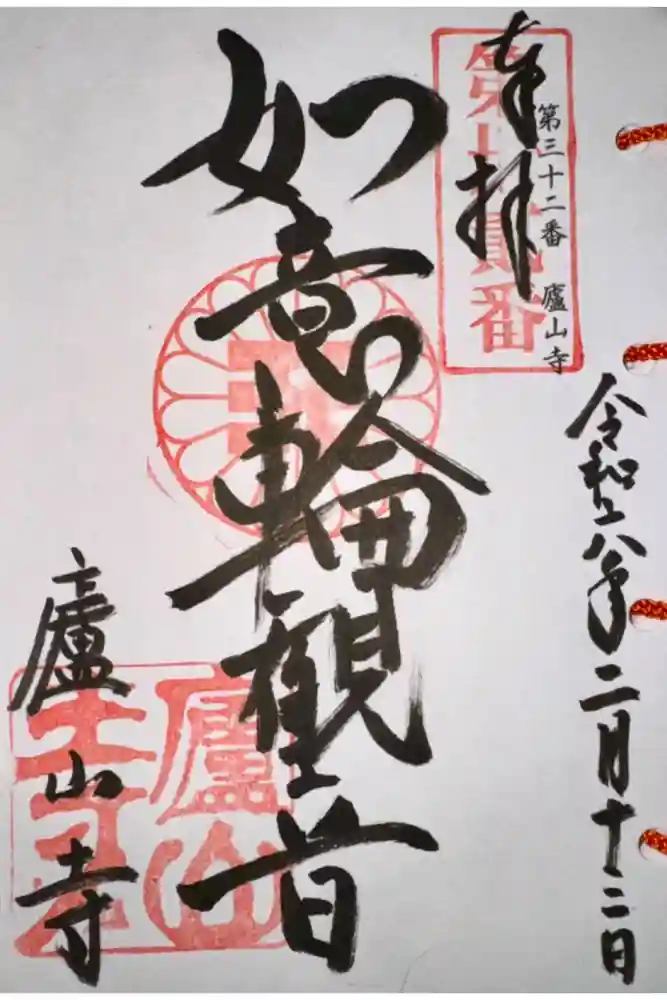 令和六年二月十二日
第三十二番 廬山寺
奉拝
如意輪観音
廬山寺
廬山寺